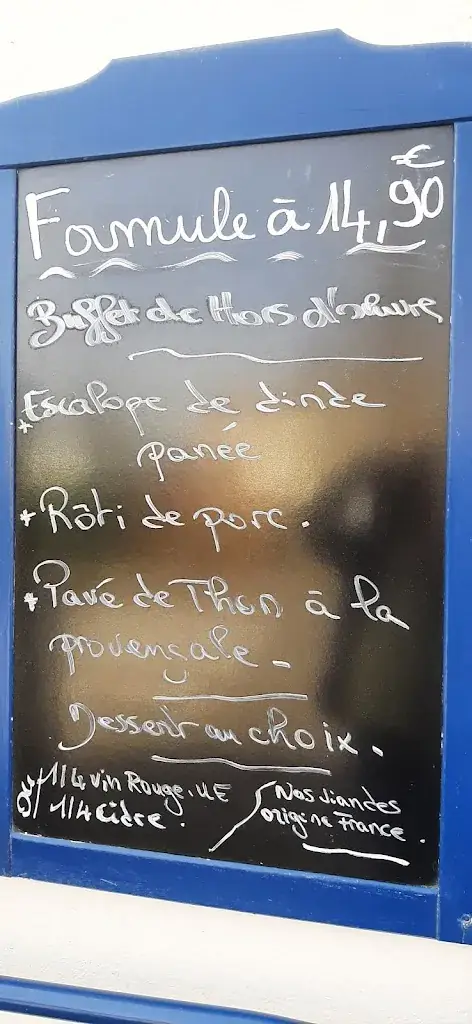 Formule à 14,90 €
Buffet de Hors d'œuvre
* Escalope de dinde
panée
* Rôti de porc.
* Pavé de Thon à la
provençale -
Dessert au choix.
1/4 vin Rouge. UE
ou 1/4 Cidre.
Nos viandes
origine France.